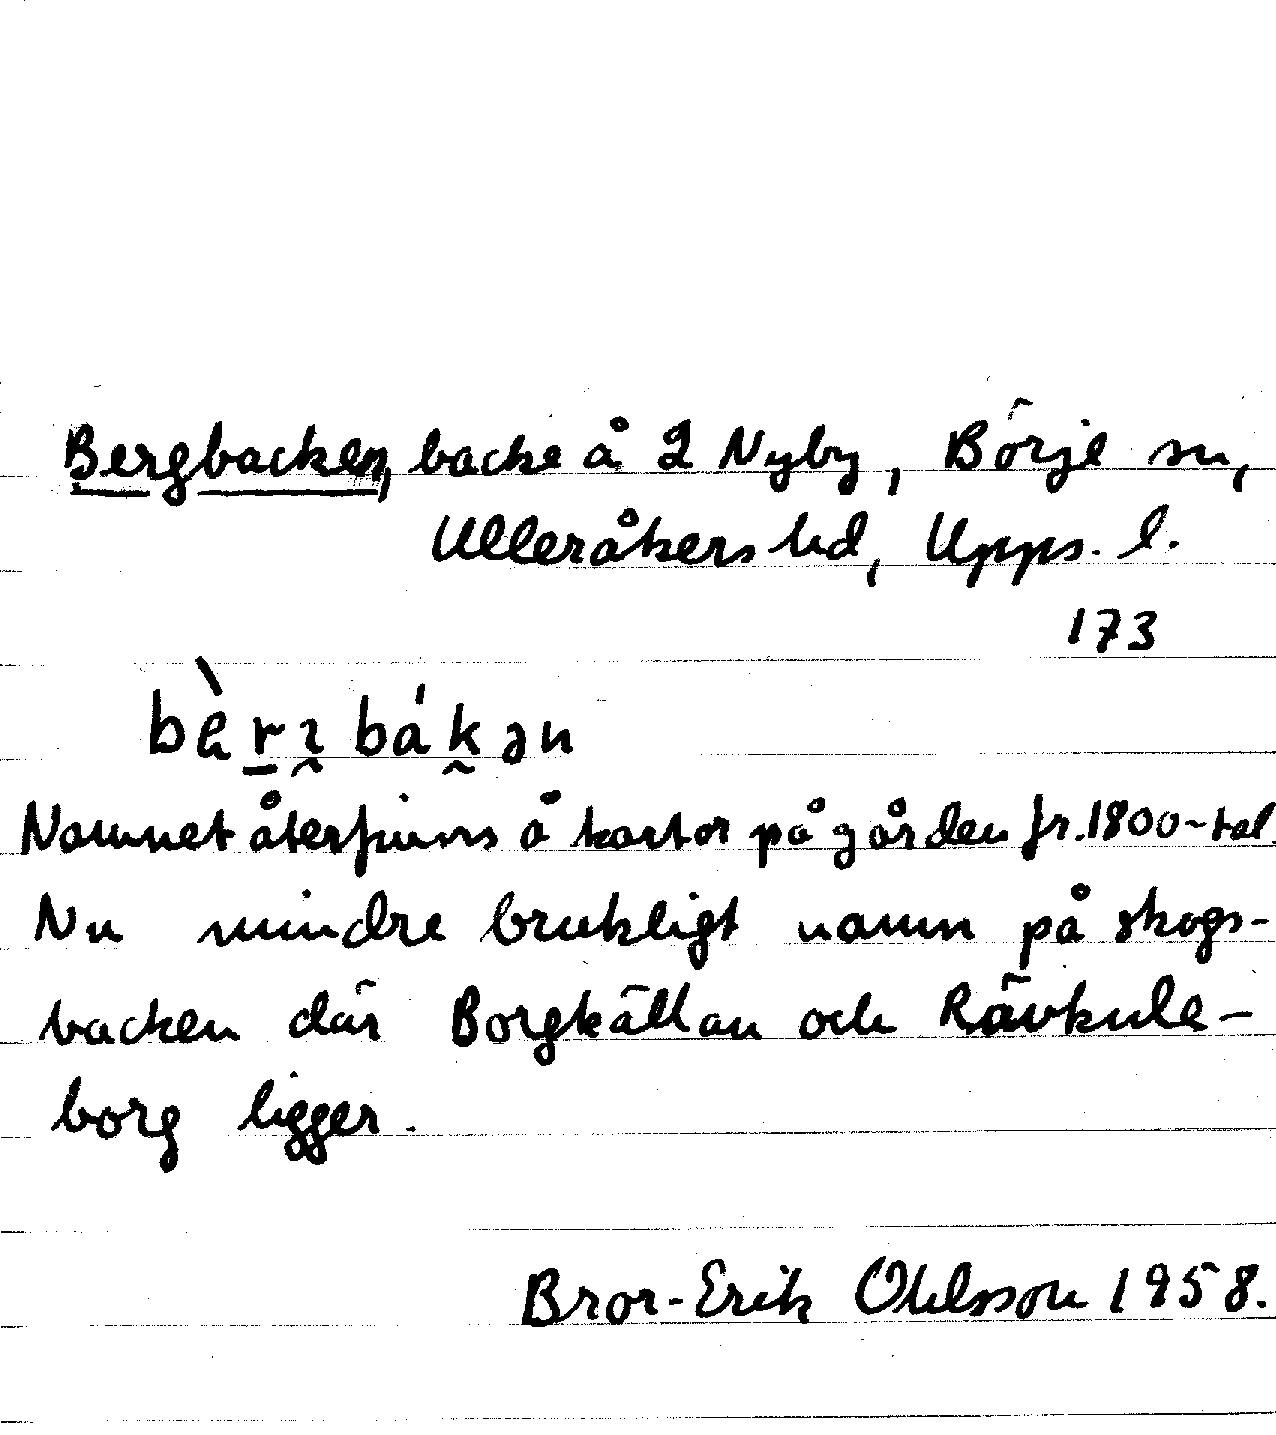 Bergbacken, backe å 2 Nyby, Börje sn,
Ulleråkers hd, Upps. l.
173
bæ̀rɪbákən
Namnet återfinns å kartor på gården fr. 1800-tal.
Nu mindre brukligt namn på skogs-
backen där Borgkällan och Rävkule-
borg ligger.
Bror-Erik Ohlsson 1958.